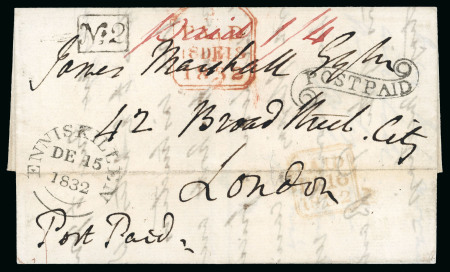 No: 2
Paid 1/4
18 DE 18
1832
James Marshall Esqr
POST PAID
42 Broad Street. City
ENNISKILLEN
DE 15
1832
London
Post Paid